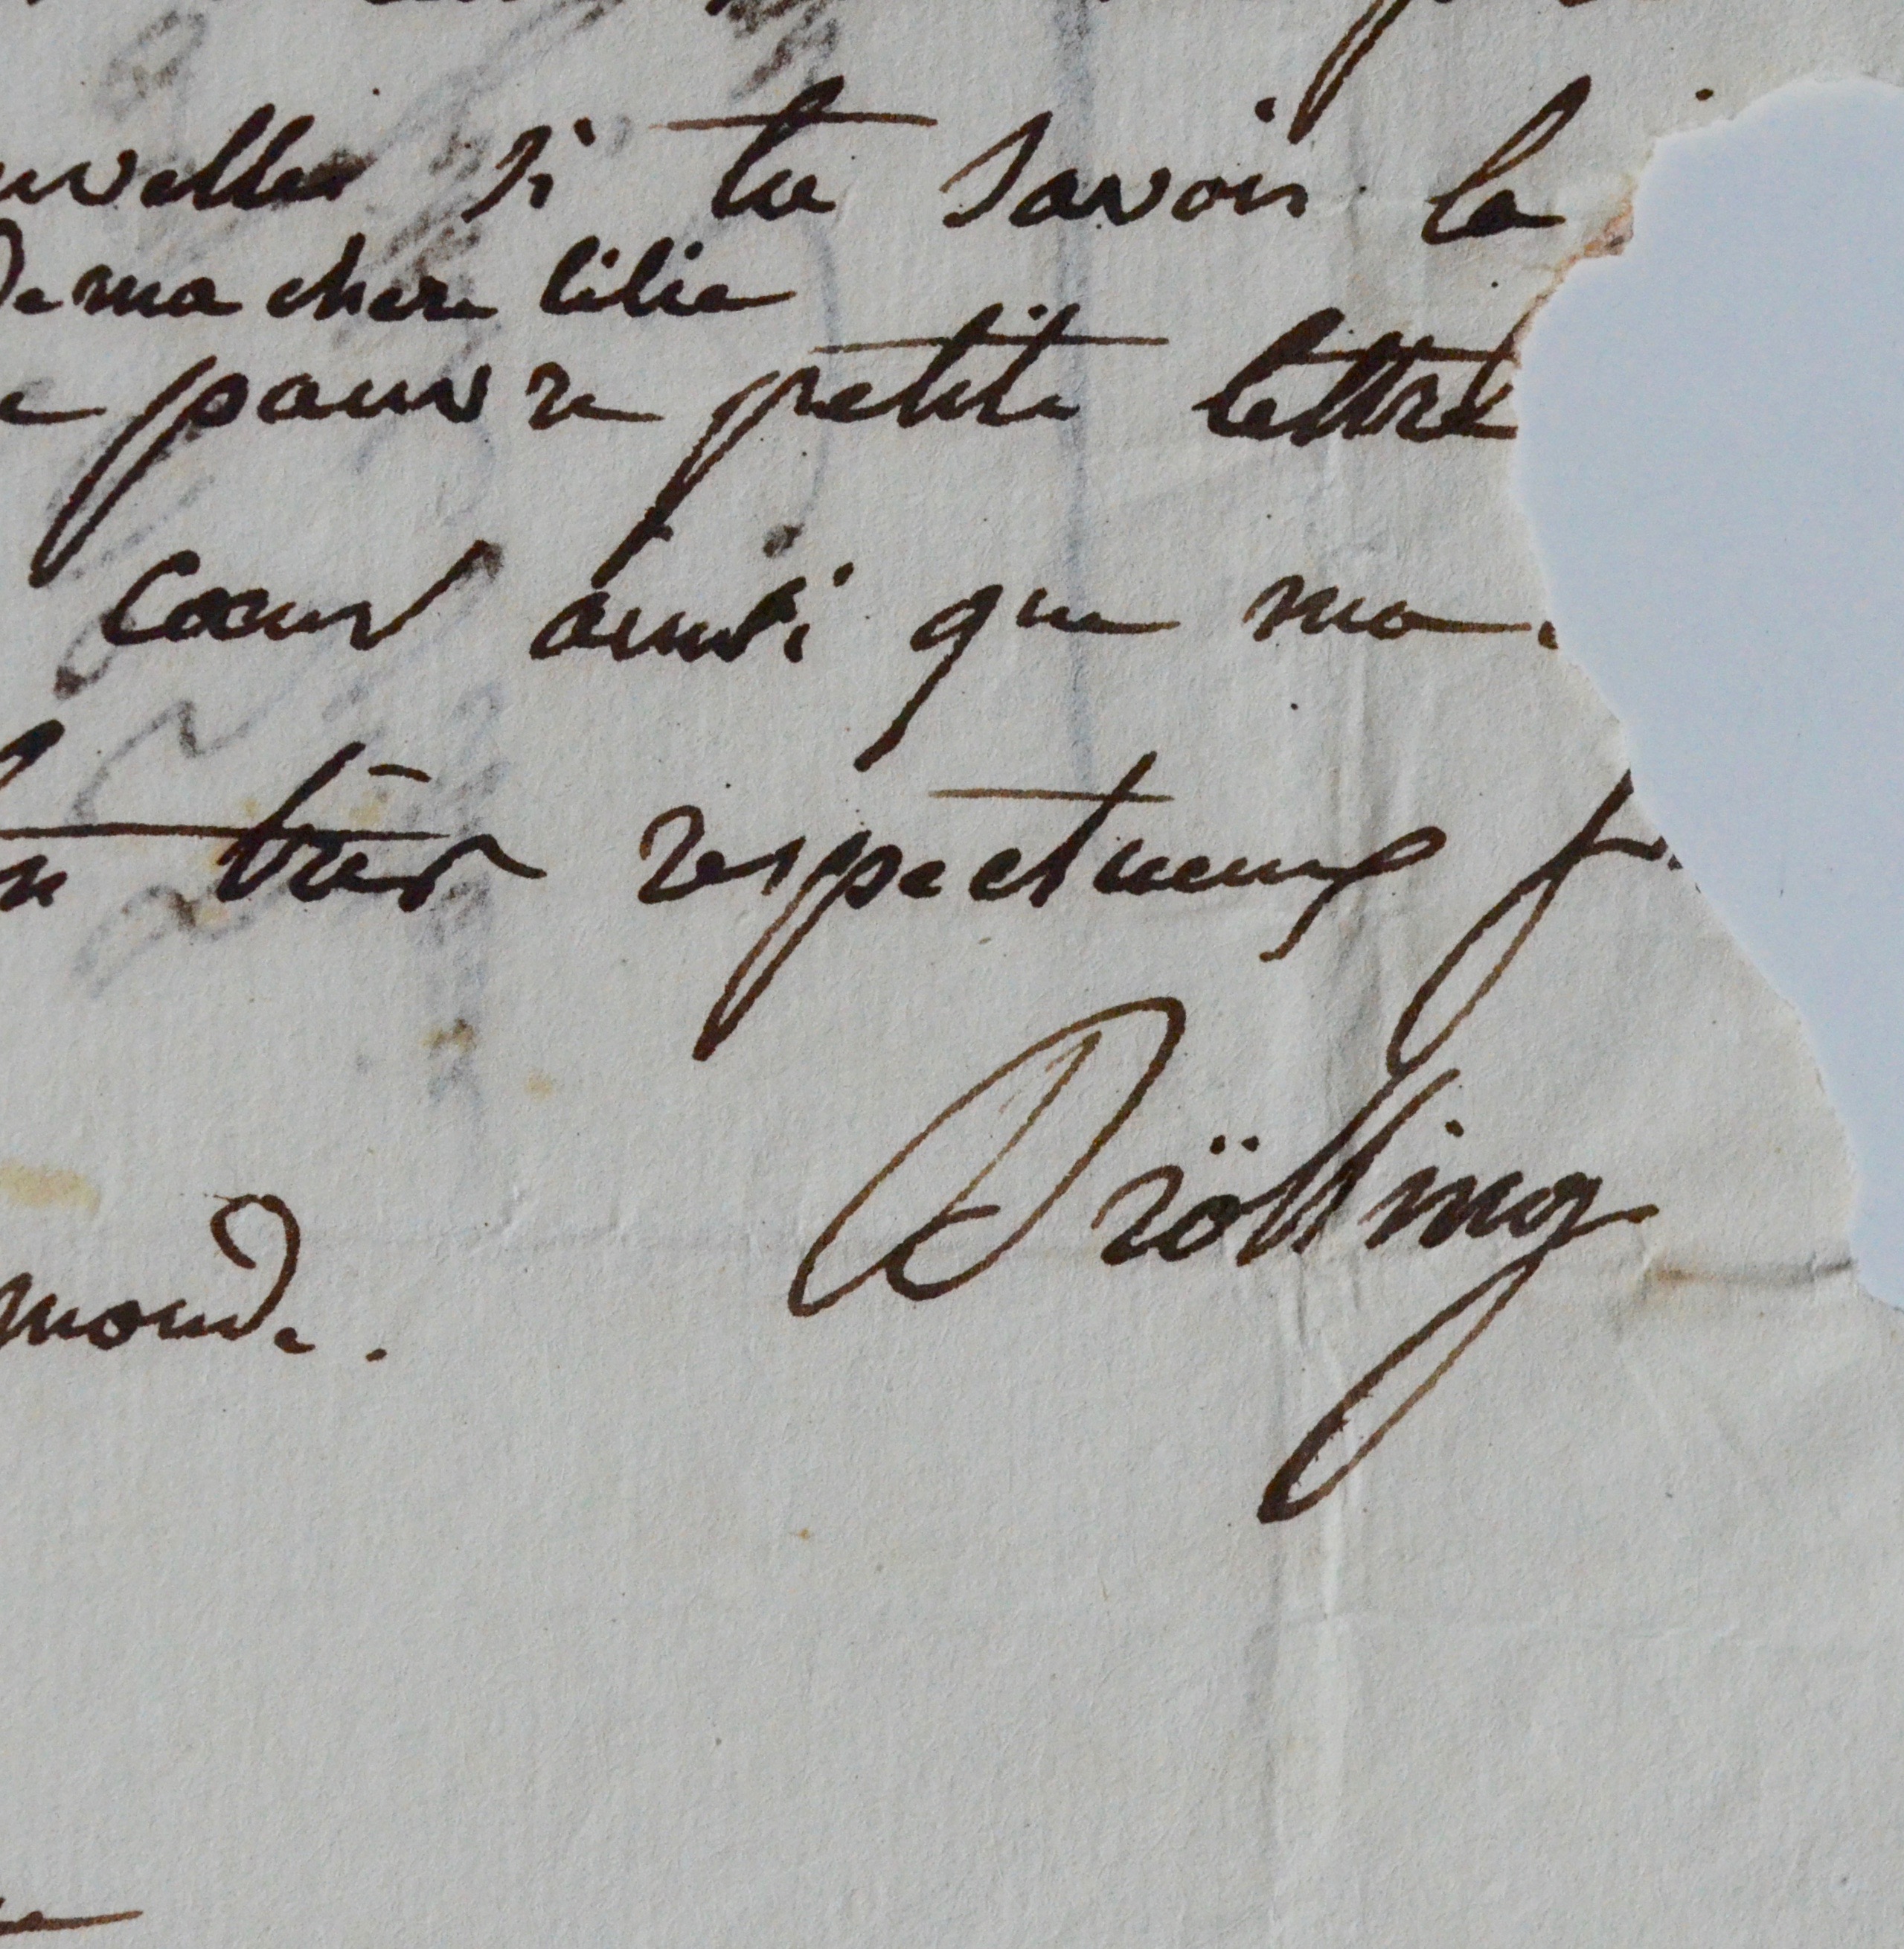 uvelles si tu savois la
De ma chere lilie
pauvre petite lettre
Cœur ainsi que ma
très respectueux f
Drölling
monde.